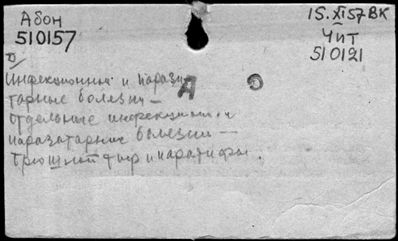 Абон
510157
15.XI57ВК
Чит
510121
Инфекционные и парази-
А
тарные болезни —
отдельные инфекционн. и
паразитарные болезни —
Брюшной тиф и паратифы.